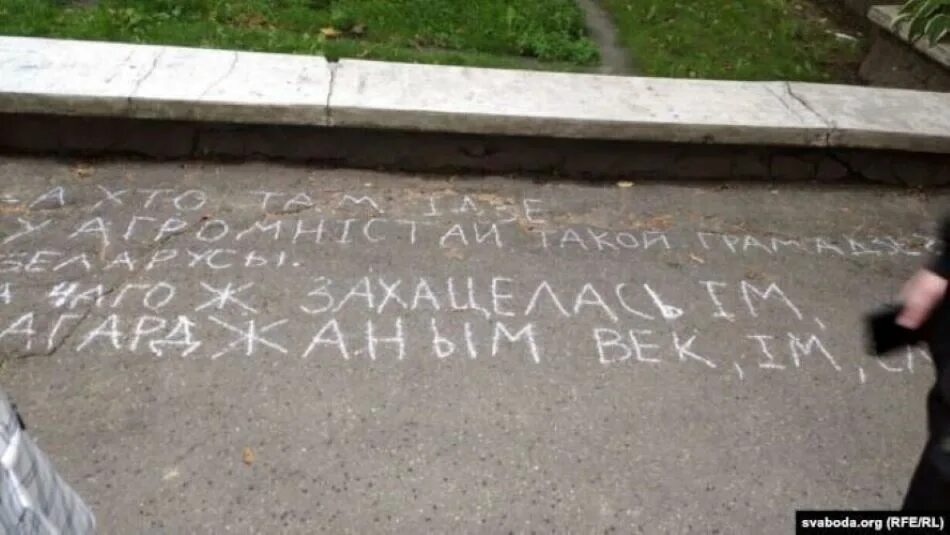 - А ХТО ТАМ ІДЗЕ
У АГРОМНІСТАЙ ТАКОЙ ГРАМАДЗЕ
БЕЛАРУСЫ.
А ЧАГО Ж ЗАХАЦЕЛАСЬ ІМ,
АГАРДЖАНЫМ ВЕК, ІМ,
svaboda.org (RFE/RL)